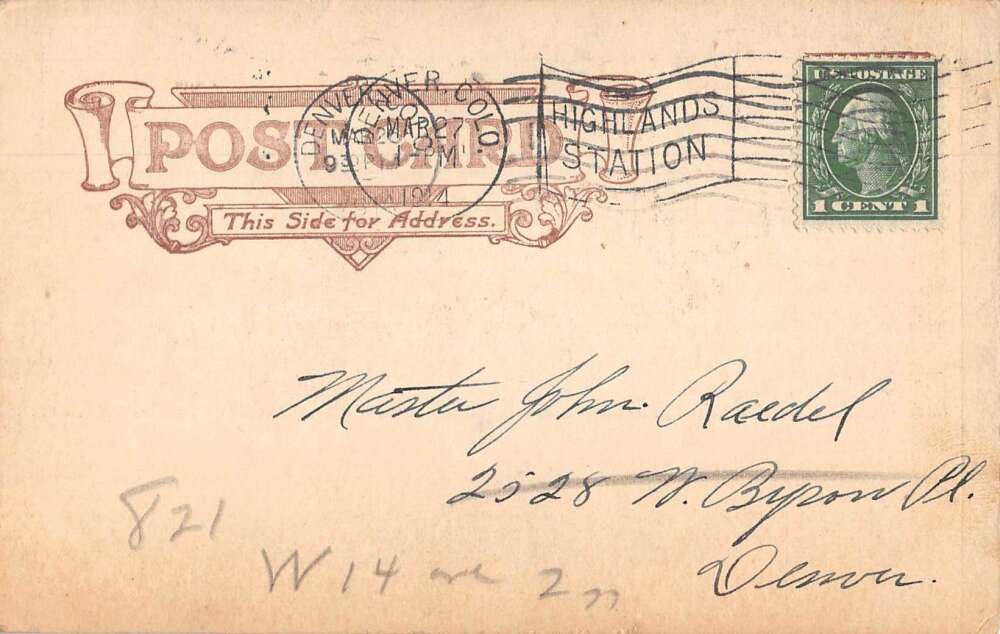 POST CARD
This Side for Address.
DENVER
DENVER, COLO.
MAR 27
PM
HIGHLANDS
STATION
U.S. POSTAGE
1 CENT 1
Master John Raedel
2528 W. Byron Pl.
Denver.
821
W 14 ave